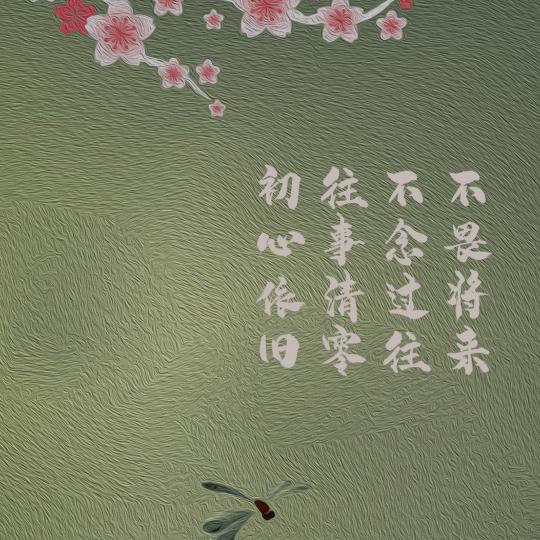 不畏将来
不念过往
往事清零
初心依旧